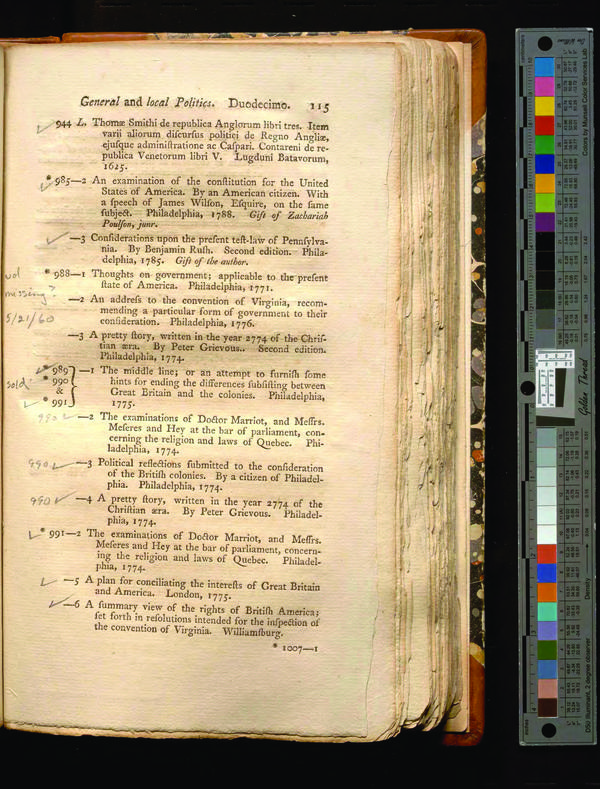 General and local Politics. Duodecimo. 115
944 L. Thomæ Smithi de republica Anglorum libri tres. Item
varii aliorum diſcurſus politici de Regno Angliæ,
ejuſque adminiſtratione ac Caſpari. Contareni de re-
publica Venetorum libri V. Lugduni Batavorum,
1625.
* 985—2 An examination of the conſtitution for the United
States of America. By an American citizen. With
a ſpeech of James Wilſon, Eſquire, on the ſame
ſubject. Philadelphia, 1788. Gift of Zachariah
Poulſon, junr.
—3 Conſiderations upon the preſent teſt-law of Pennſylva-
nia. By Benjamin Ruſh. Second edition. Phila-
delphia, 1785. Gift of the author.
vol
missing?
5/21/60
* 988—1 Thoughts on government; applicable to the preſent
ſtate of America. Philadelphia, 1771.
—2 An addreſs to the convention of Virginia, recom-
mending a particular form of government to their
conſideration. Philadelphia, 1776.
—3 A pretty ſtory, written in the year 2774 of the Chriſ-
tian æra. By Peter Grievous.. Second edition.
Philadelphia, 1774.
sold
* 989
* 990
&
* 991
—1 The middle line; or an attempt to furniſh ſome
hints for ending the differences ſubſiſting between
Great Britain and the colonies. Philadelphia,
1775.
990 —2 The examinations of Doctor Marriot, and Meſſrs.
Meſeres and Hey at the bar of parliament, con-
cerning the religion and laws of Quebec. Phi-
ladelphia, 1774.
990 —3 Political reflections ſubmitted to the conſideration
of the Britiſh colonies. By a citizen of Philadel-
phia. Philadelphia, 1774.
990 —4 A pretty ſtory, written in the year 2774 of the
Chriſtian æra. By Peter Grievous. Philadel-
phia, 1774.
* 991—2 The examinations of Doctor Marriot, and Meſſrs.
Meſeres and Hey at the bar of parliament, concern-
ing the religion and laws of Quebec. Philadel-
phia, 1774.
—5 A plan for conciliating the intereſts of Great Britain
and America. London, 1775.
—6 A ſummary view of the rights of Britiſh America;
ſet forth in reſolutions intended for the inſpection of
the convention of Virginia. Williamſburg.
* 1007—1
Colors by Munsell Color Services Lab
Golden Thread
Density